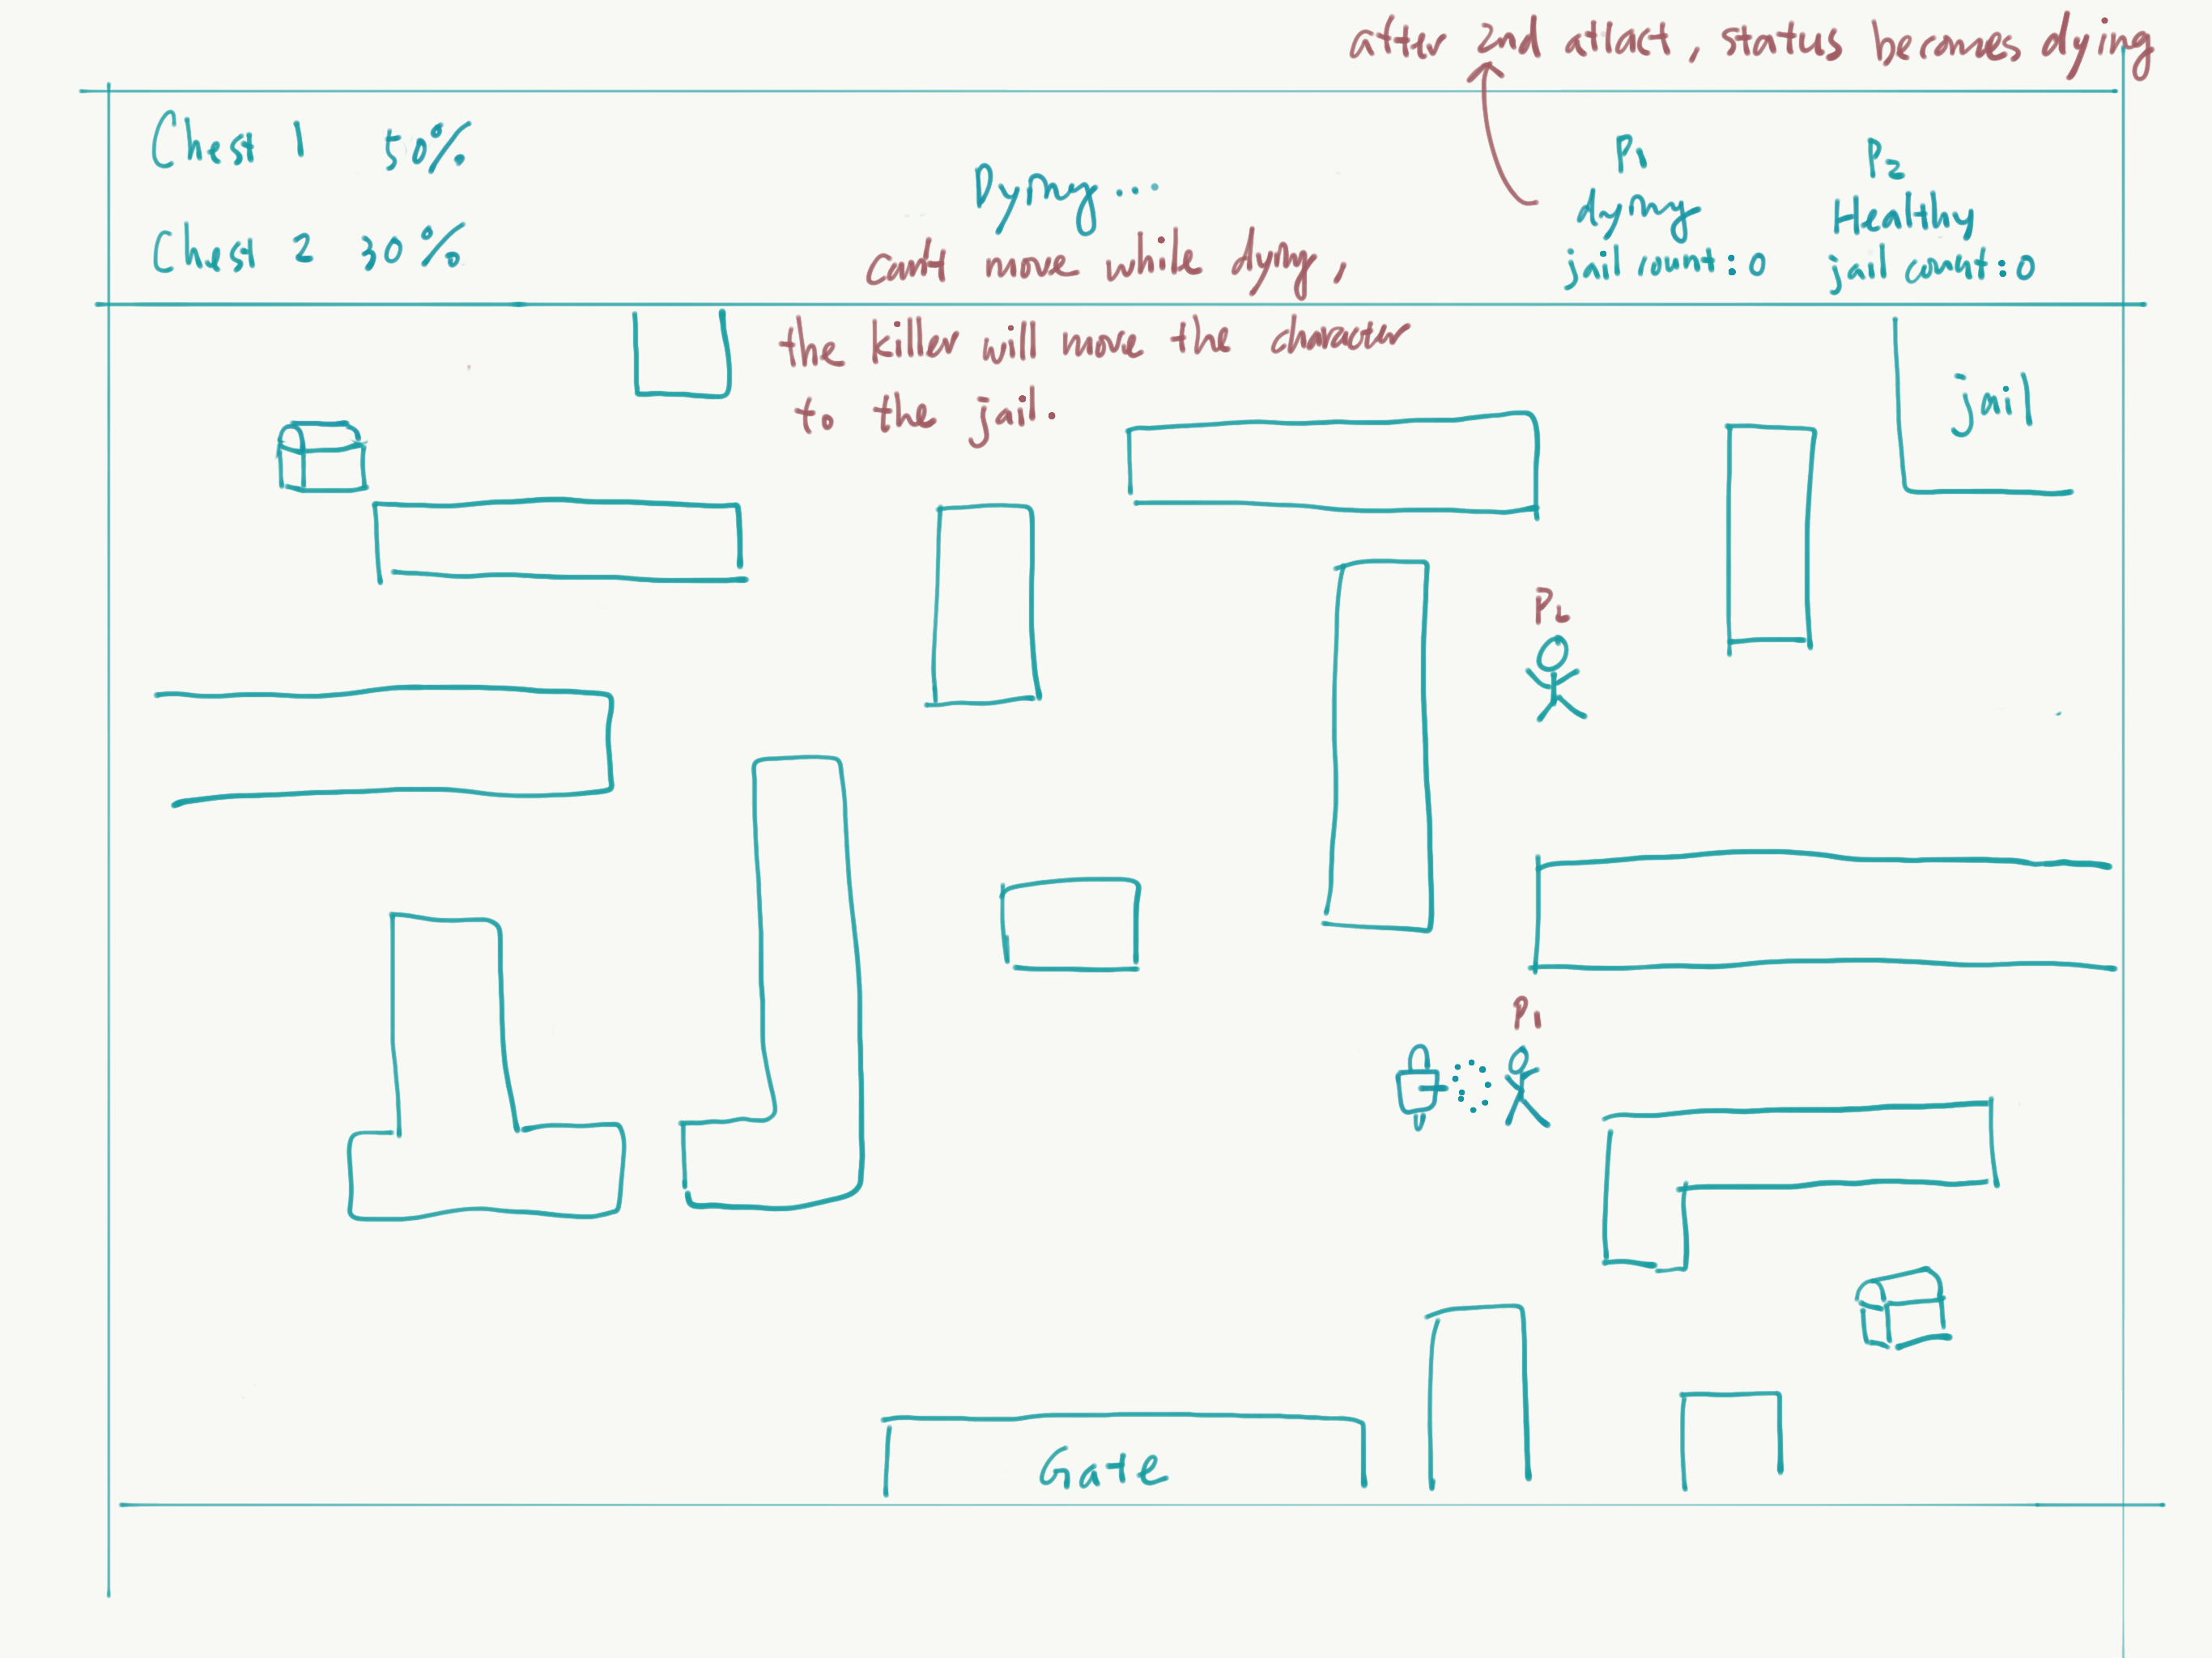 after 2nd attact, status becomes dying
Chest 1 50%
Chest 2 30%
Dying...
cant move while dying,
the killer will move the character
to the jail.
P1
dying
jail count: 0
P2
Healthy
jail count: 0
jail
P2
P1
Gate